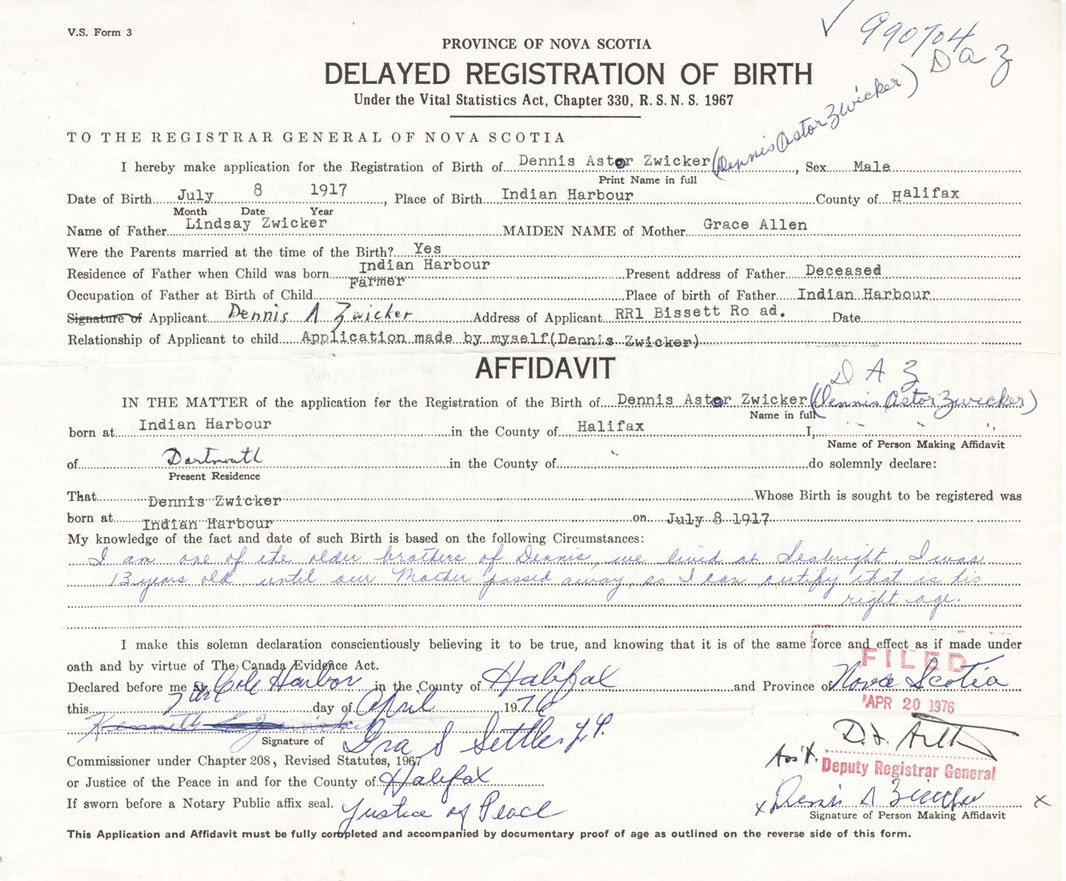 V.S. Form 3
✓ 990704
D A Z
PROVINCE OF NOVA SCOTIA
DELAYED REGISTRATION OF BIRTH
Under the Vital Statistics Act, Chapter 330, R.S.N.S. 1967
TO THE REGISTRAR GENERAL OF NOVA SCOTIA
I hereby make application for the Registration of Birth of Dennis Astor Zwicker (Dennis Astor Zwicker), Sex Male
Print Name in full
Date of Birth July 8 1917, Place of Birth Indian Harbour County of Halifax
Month Date Year
Name of Father Lindsay Zwicker MAIDEN NAME of Mother Grace Allen
Were the Parents married at the time of the Birth? Yes
Residence of Father when Child was born Indian Harbour Present address of Father Deceased
Occupation of Father at Birth of Child Farmer Place of birth of Father Indian Harbour
Signature of Applicant Dennis A Zwicker Address of Applicant RR1 Bissett Ro ad. Date
Relationship of Applicant to child Application made by myself(Dennis Zwicker)
AFFIDAVIT
D A Z
IN THE MATTER of the application for the Registration of the Birth of Dennis Astor Zwicker (Dennis Astor Zwicker)
Name in full
born at Indian Harbour in the County of Halifax I, " " "
Name of Person Making Affidavit
of Dartmouth in the County of " do solemnly declare:
Present Residence
That Dennis Zwicker Whose Birth is sought to be registered was
born at Indian Harbour on July 8 1917
My knowledge of the fact and date of such Birth is based on the following Circumstances:
I am one of the older brothers of Dennis, we lived at Seabright I was
13 years old until our Mother passed away, so I can certify that is his
right age.
I make this solemn declaration conscientiously believing it to be true, and knowing that it is of the same force and effect as if made under
oath and by virtue of The Canada Evidence Act.
FILED
Declared before me at Cole Harbor in the County of Halifax and Province of Nova Scotia
this 7th day of April 1976
APR 20 1976
Kenneth
Signature of Ira S Settle J.P.
Commissioner under Chapter 208, Revised Statutes, 1967
Ass't. Deputy Registrar General
or Justice of the Peace in and for the County of Halifax
If sworn before a Notary Public affix seal. Justice of Peace
x Dennis A Zwicker x
Signature of Person Making Affidavit
This Application and Affidavit must be fully completed and accompanied by documentary proof of age as outlined on the reverse side of this form.